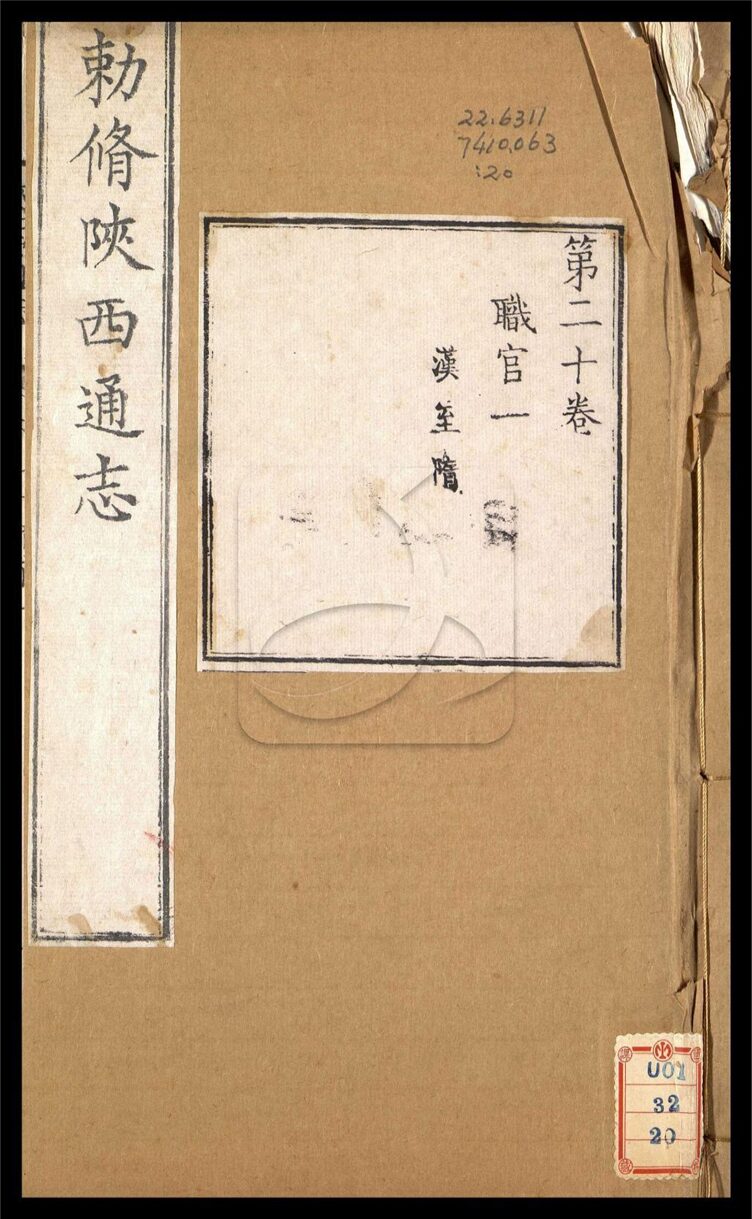 勅脩陝西通志
22.6311
7410.063
:20
第二十卷
職官一
漢至隋
U01
32
20